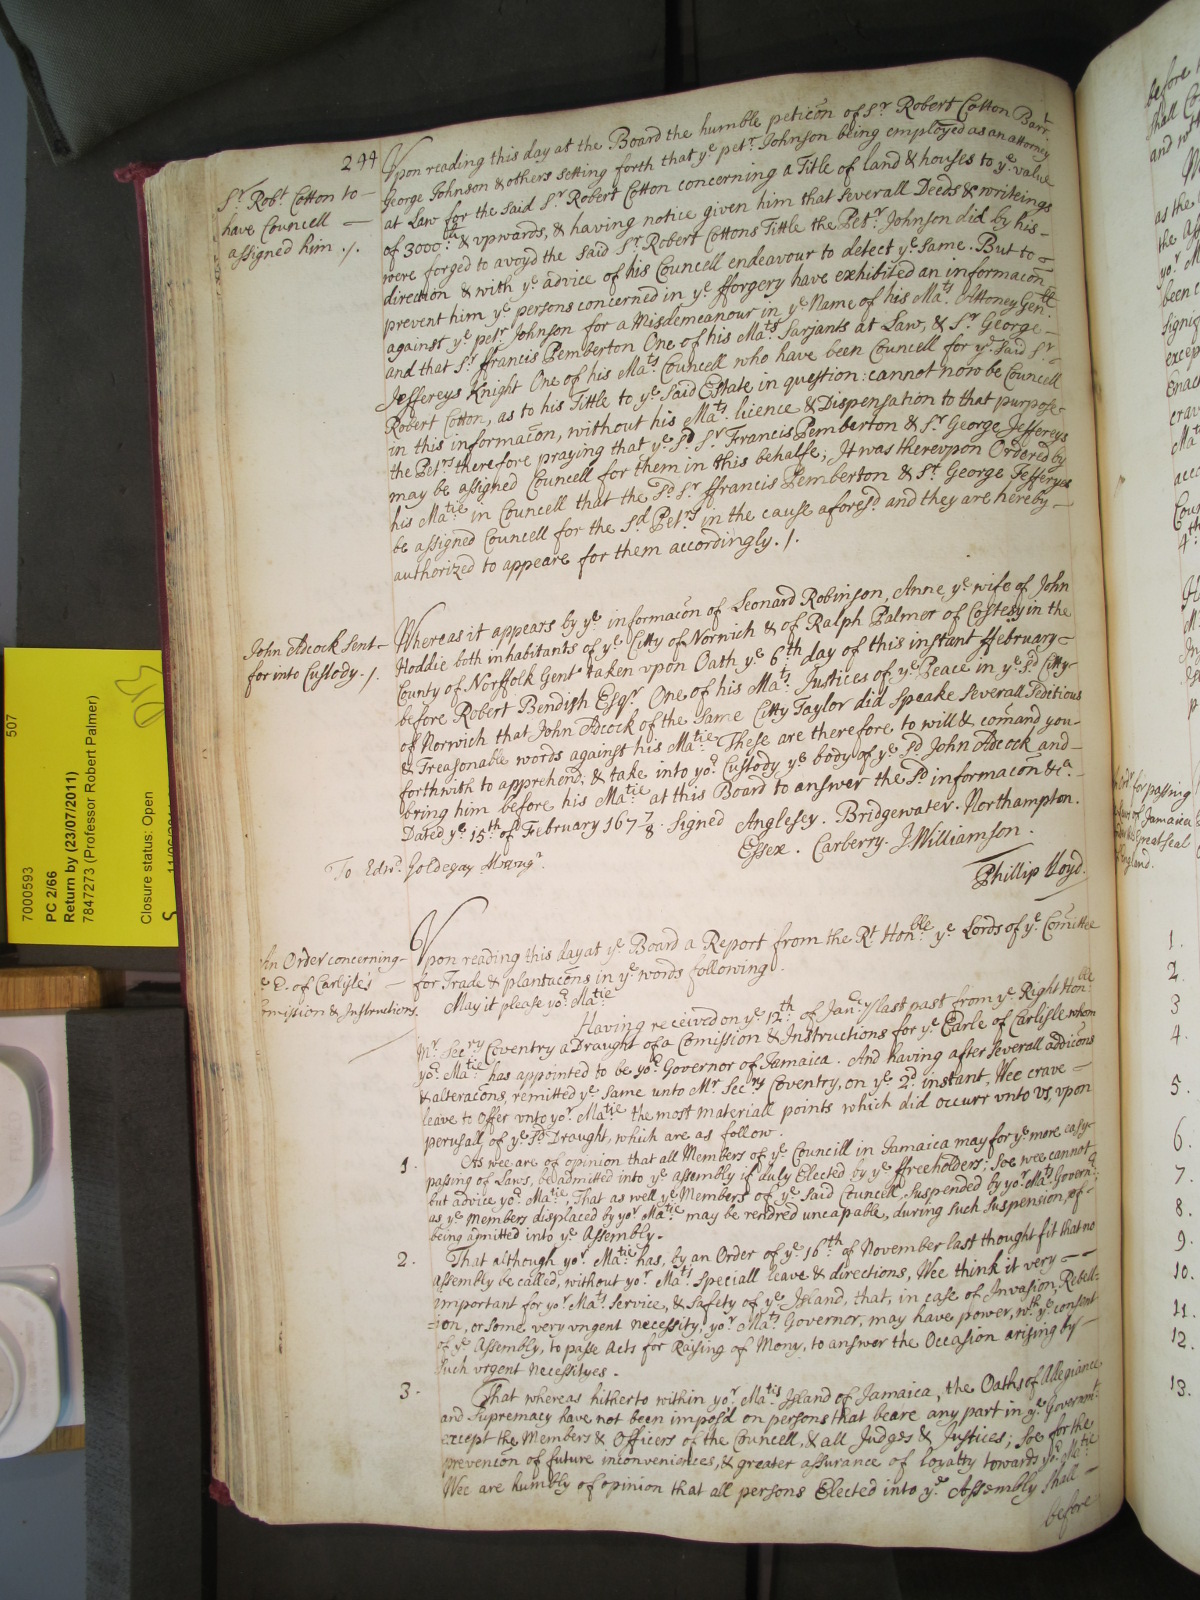 244
Sr. Robt. Cotton to
have Councell
assigned him ./.
Vpon reading this day at the Board the humble peticon of Sr Robert Cotton Barrt.
George Johnson & others setting forth that ye petr. Johnson being employed as an attorney
at Law for the said Sr. Robert Cotton concerning a Title of land & houses to ye value
of 3000li & vpwards, & having notice given him that severall Deeds & writeings
were forged to avoyd the said Sr. Robert Cottons Tittle the Petr. Johnson did by his
direction & with ye advice of his Councell endeavour to detect ye same. But to
prevent him ye persons concerned in ye fforgery have exhibited an informacon
against ye petr. Johnson for a Misdemeanour in ye Name of his Mats. Attoney Genll
and that Sr ffrancis Pemberton One of his Mats Sarjants at Law, & Sr. George
Jeffereys Knight One of his Mats Councell who have been Councell for ye. said Sr.
Robert Cotton, as to his Tittle to ye Said Estate in question: cannot now be Councell
in this informacon, without his Mats. licence & Dispensation to that purpose
the Petrs therefore praying that ye sd Sr Francis Pemberton & Sr George Jeffereys
may be assigned Councell for them in this behalfe; It was therevpon Ordered by
his Matie in Councell that the Sd Sr ffrancis Pemberton & Sr. George Jefferyes
be assigned Councell for the sd Petrs in the cause aforesd. and they are hereby
authorized to appeare for them accordingly. /.
John Adcock Sent
for into Custody. /.
Whereas it appears by ye informacon of Leonard Robinson, Anne ye wife of John
Hoddie both inhabitants of ye Citty of Norwich & of Ralph Palmer of Costesy in the
County of Norffolk Gent. taken vpon Oath ye 6th day of this instant ffebruary
before Robert Bendish Esqr. One of his Mats. Justices of ye Peace in ye Sd Citty
of Norwich that John Adcock of the same Citty Taylor did Speake Severall Seditious
& Treasonable words against his Matie These are therefore to will & comand you
forthwith to apprehend, & take into yor. Custody ye body of ye Sd. John Adcock and
bring him before his Matie at this Board to answer the Sd informacon &ca.
Dated ye. 15th of February 1677/8. Signed Anglesey. Bridgewater. Northampton.
Essex. Carberry. J Williamson.
To Edwd. Goldegay Messengr.
Phillip Lloyd.
An Order concerning
ye E. of Carlisle's
omission & Instructions.
Vpon reading this day at ye Board a Report from the Rt Honble ye Lords of ye Comittee
for Trade & plantacons in ye words following.
May it please yor. Matie
Having received on ye 12th of Janry last past from ye Right Honble
Mr. Secry Coventry a Draught of a Comission & Instructions for ye Earle of Carlisle whom
yor. Matie has appointed to be yor. Governor of Jamaica. And having after Severall addicons
& alteracons, remitted ye same unto Mr Secry Coventry, on ye 2d. instant, Wee crave
leave to Offer vnto yor. Matie the most materiall points which did occurr vnto vs vpon
perusall of ye sd Draught, which are as follow.
1. As wee are of opinion that all Members of ye Councill in Jamaica may for ye more easy
passing of Laws, be admitted into ye assembly if duly Elected by ye ffreeholders; Soe wee cannot
but advice yor. Matie, That as well ye Members of ye said Councell, Suspended by yor. Mats Governr.
as ye Members displaced by yor Matie may be rendred uncapable, during such Suspension, of
being admitted into ye Assembly.
2. That although yor. Matie has, by an Order of ye 16th of November last thought fit that no
assembly be called, without yor. Mats. Speciall leave & directions, Wee think it very
important for yor. Mats service, & Safety of ye Island, that, in case of Invasion, Rebell=
=ion, or some very vrgent necessity, yor. Mats Governor, may have power, wth ye. consent
of ye Assembly, to passe Acts for Raising of Mony, to answer the Occasion arising by
such vrgent necessityes.
3. That whereas hitherto within yor. Maties Island of Jamaica, the Oaths of Allegiance
and Supremacy have not been imposd on persons that beare any part in ye Governmt.
except the Members & Officers of the Councell, & all Judges & Justices; Soe for the
prevencon of future inconveniences, & greater assurance of loyalty towards yor. Matie
Wee are humbly of opinion that all persons Elected into ye Assembly shall
before
7000593 507
PC 2/66
Return by (23/07/2011)
7847273 (Professor Robert Palmer)
Closure status: Open
before
shall
as the
for passing
of Jamaica
Great seal
England.
1.
2.
3
4.
5.
6.
7.
8.
9.
10.
11.
12.
13.